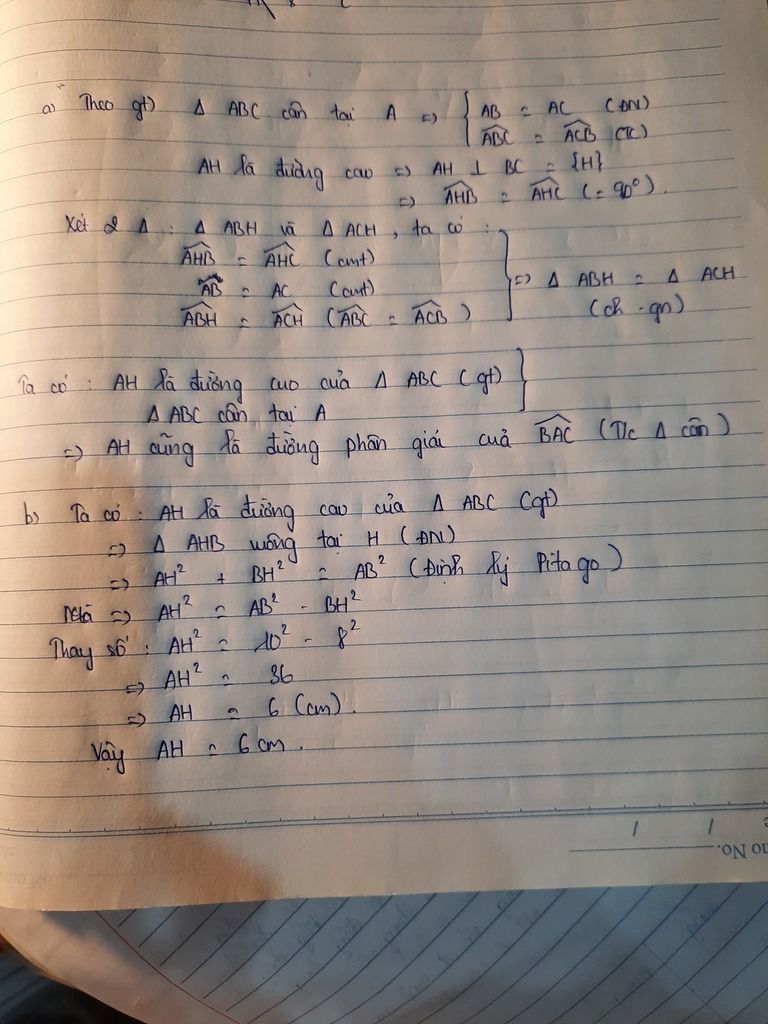 a) Theo gt) Δ ABC cân tại A => { AB = AC (ĐN)
ABC = ACB (TC)
AH là đường cao => AH ⊥ BC = {H}
=> AHB = AHC (= 90°).
Xét 2 Δ : Δ ABH và Δ ACH, ta có :
AHB = AHC (cmt)
AB = AC (cmt) => Δ ABH = Δ ACH
ABH = ACH (ABC = ACB) (ch - gn)
Ta có : AH là đường cao của Δ ABC (gt)
Δ ABC cân tại A
=> AH cũng là đường phân giái cuả BAC (T/c Δ cân)
b) Ta có : AH là đường cao của Δ ABC (gt)
=> Δ AHB vuông tại H (ĐN)
=> AH² + BH² = AB² (Định lý Pitago)
=> AH² = AB² - BH²
Thay số : AH² = 10² - 8²
=> AH² = 36
=> AH = 6 (cm).
Vậy AH = 6cm.
No.